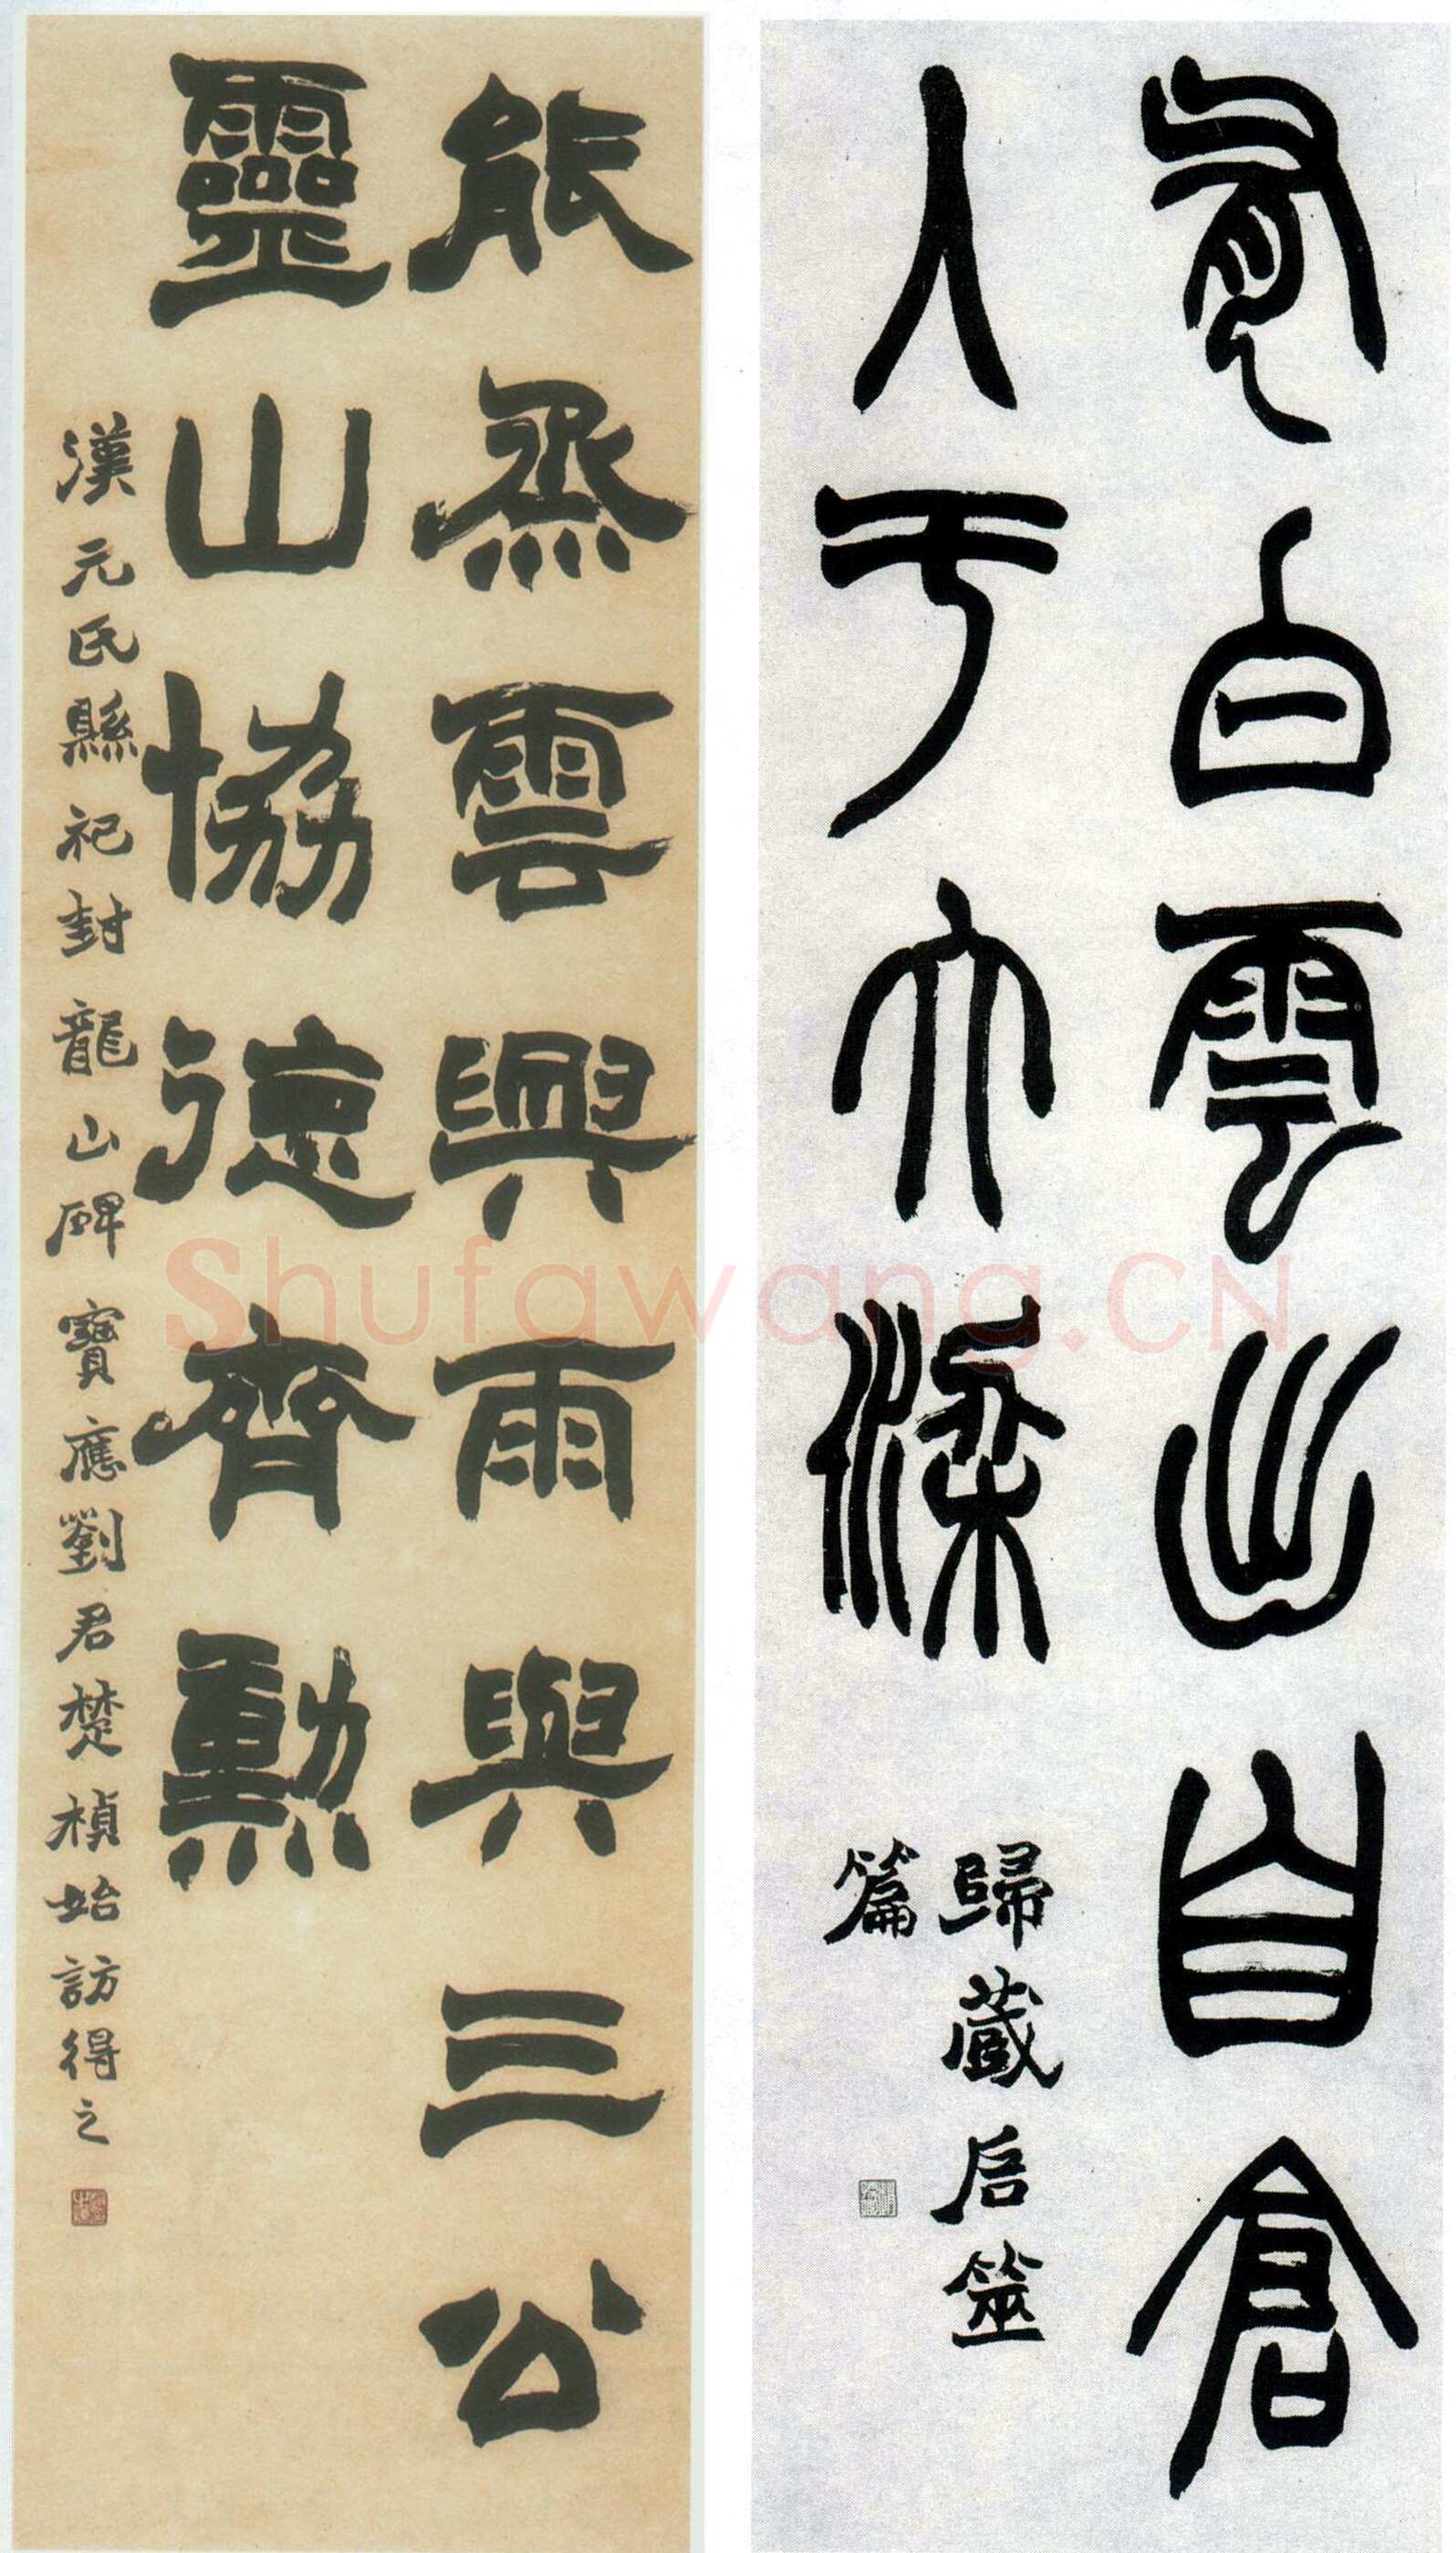 有白雲出自倉
入于大梁
歸藏启筮
篇
能烝雲興雨與三公
靈山協德齊勳
漢元氏縣祀封龍山碑寶應劉君楚楨始訪得之
Shufawang.CN